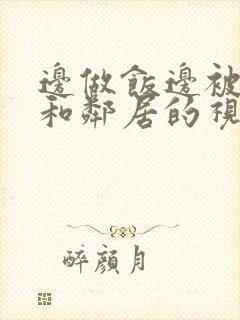 邊做飯邊被
和鄰居的視
醉顏月